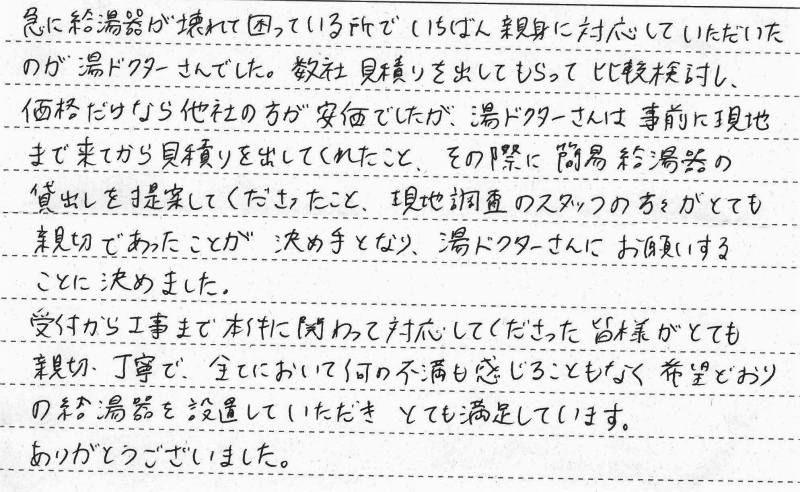 急に給湯器が壊れて困っている所でいちばん親身に対応していただいた
のが湯ドクターさんでした。数社見積りを出してもらって比較検討し、
価格だけなら他社の方が安価でしたが、湯ドクターさんは事前に現地
まで来てから見積りを出してくれたこと、その際に簡易給湯器の
貸出しを提案してくださったこと、現地調査のスタッフの方々がとても
親切であったことが決め手となり、湯ドクターさんにお願いする
ことに決めました。
受付から工事まで本件に関わって対応してくださった皆様がとても
親切、丁寧で、全てにおいて何の不満も感じることもなく希望どおり
の給湯器を設置していただきとても満足しています。
ありがとうございました。